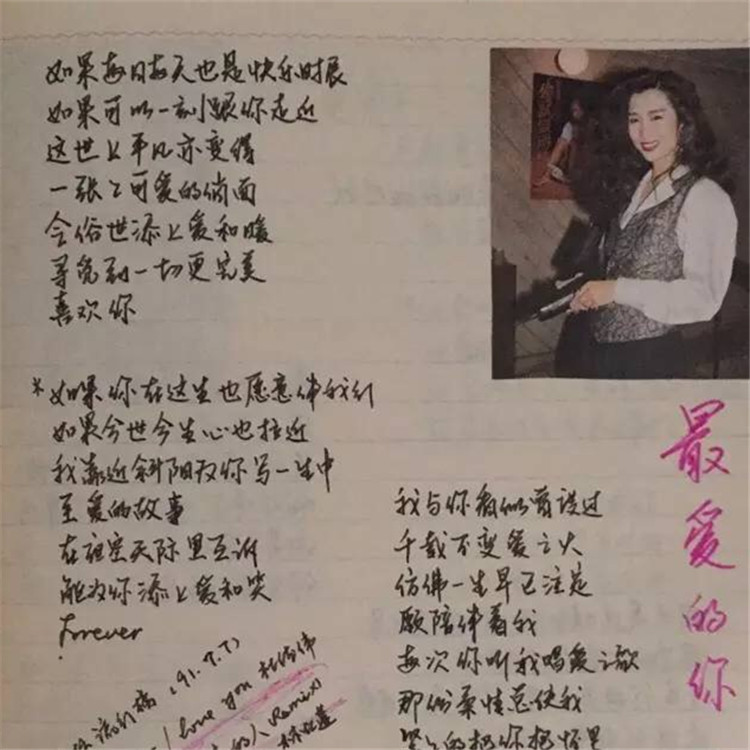 如果每日每天也是快乐时辰
如果可以一刻跟你走近
这世上平凡亦变得
一张々可爱的俏面
令俗世添上爱和暖
寻觅到一切更完美
喜欢你
*如果你在这生也愿意伴我行
如果今世今生心也拉近
我靠近斜阳为你写一生中
至爱的故事
在夜空天际里互诉
能为你添上爱和笑
Forever
流行榜 (91.7.7)
I love you 杜德伟
Remix)
最爱的你
我与你看似曾说过
千载不变爱之火
仿佛一生早已注定
愿陪伴着我
每次你叫我唱爱之歌
那份柔情总使我
紧々的把你抱怀里